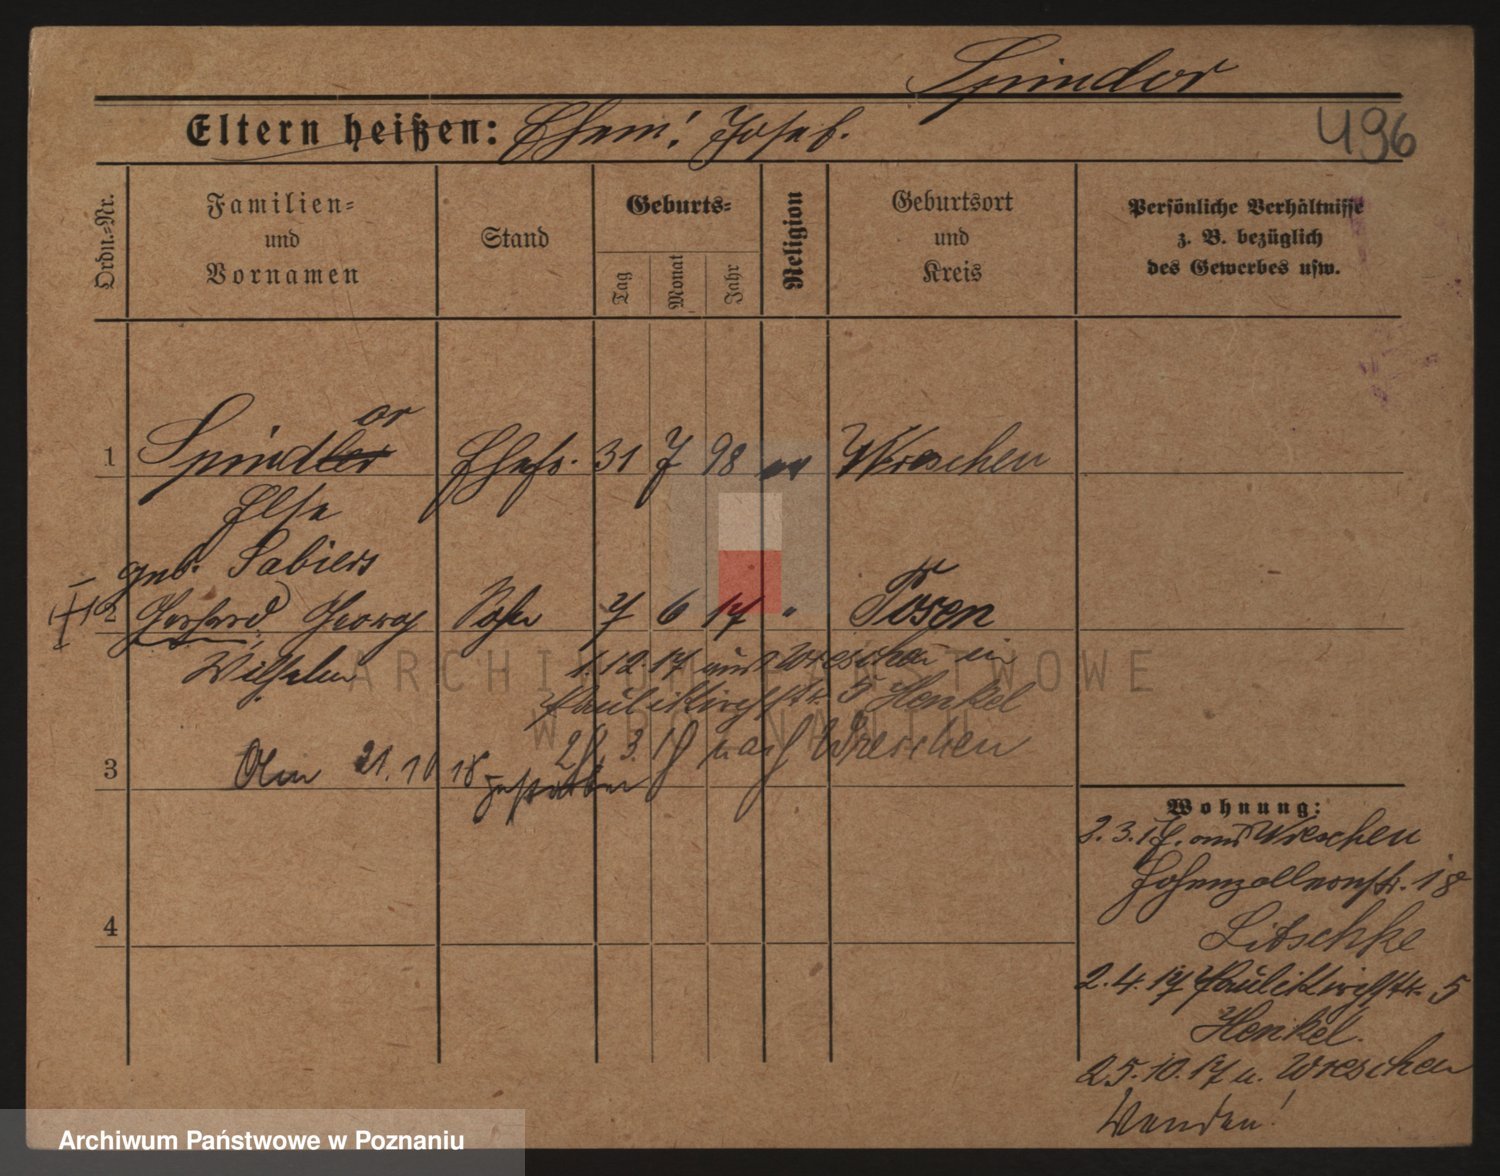 Spindor
Eltern heißen: Ehem: Josef.
496
Ordn.-Nr.
Familien-
und
Vornamen
Stand
Geburts-
Tag
Monat
Jahr
Religion
Geburtsort
und
Kreis
Persönliche Verhältnisse
z. B. bezüglich
des Gewerbes usw.
or
1 Spindler Ehefr. 31 7 98 Wreschen
Else
geb. Sabiers
2 Gerhard Georg Sohn 7 6 17 " Posen
Wilhelm
1.12.17 aus Wreschen
Paulikirchstr. 5 Henkel
3. nach Wreschen
3 Am 21. 10 18 gestorben
4
Wohnung:
2.3.17. aus Wreschen
Hohenzollernstr. 18
Litschke
2.4.17 Paulikirchstr. 5
Henkel.
25.10.17 n. Wreschen
Wenden!
ARCHIWUM PAŃSTWOWE
W POZNANIU
Archiwum Państwowe w Poznaniu